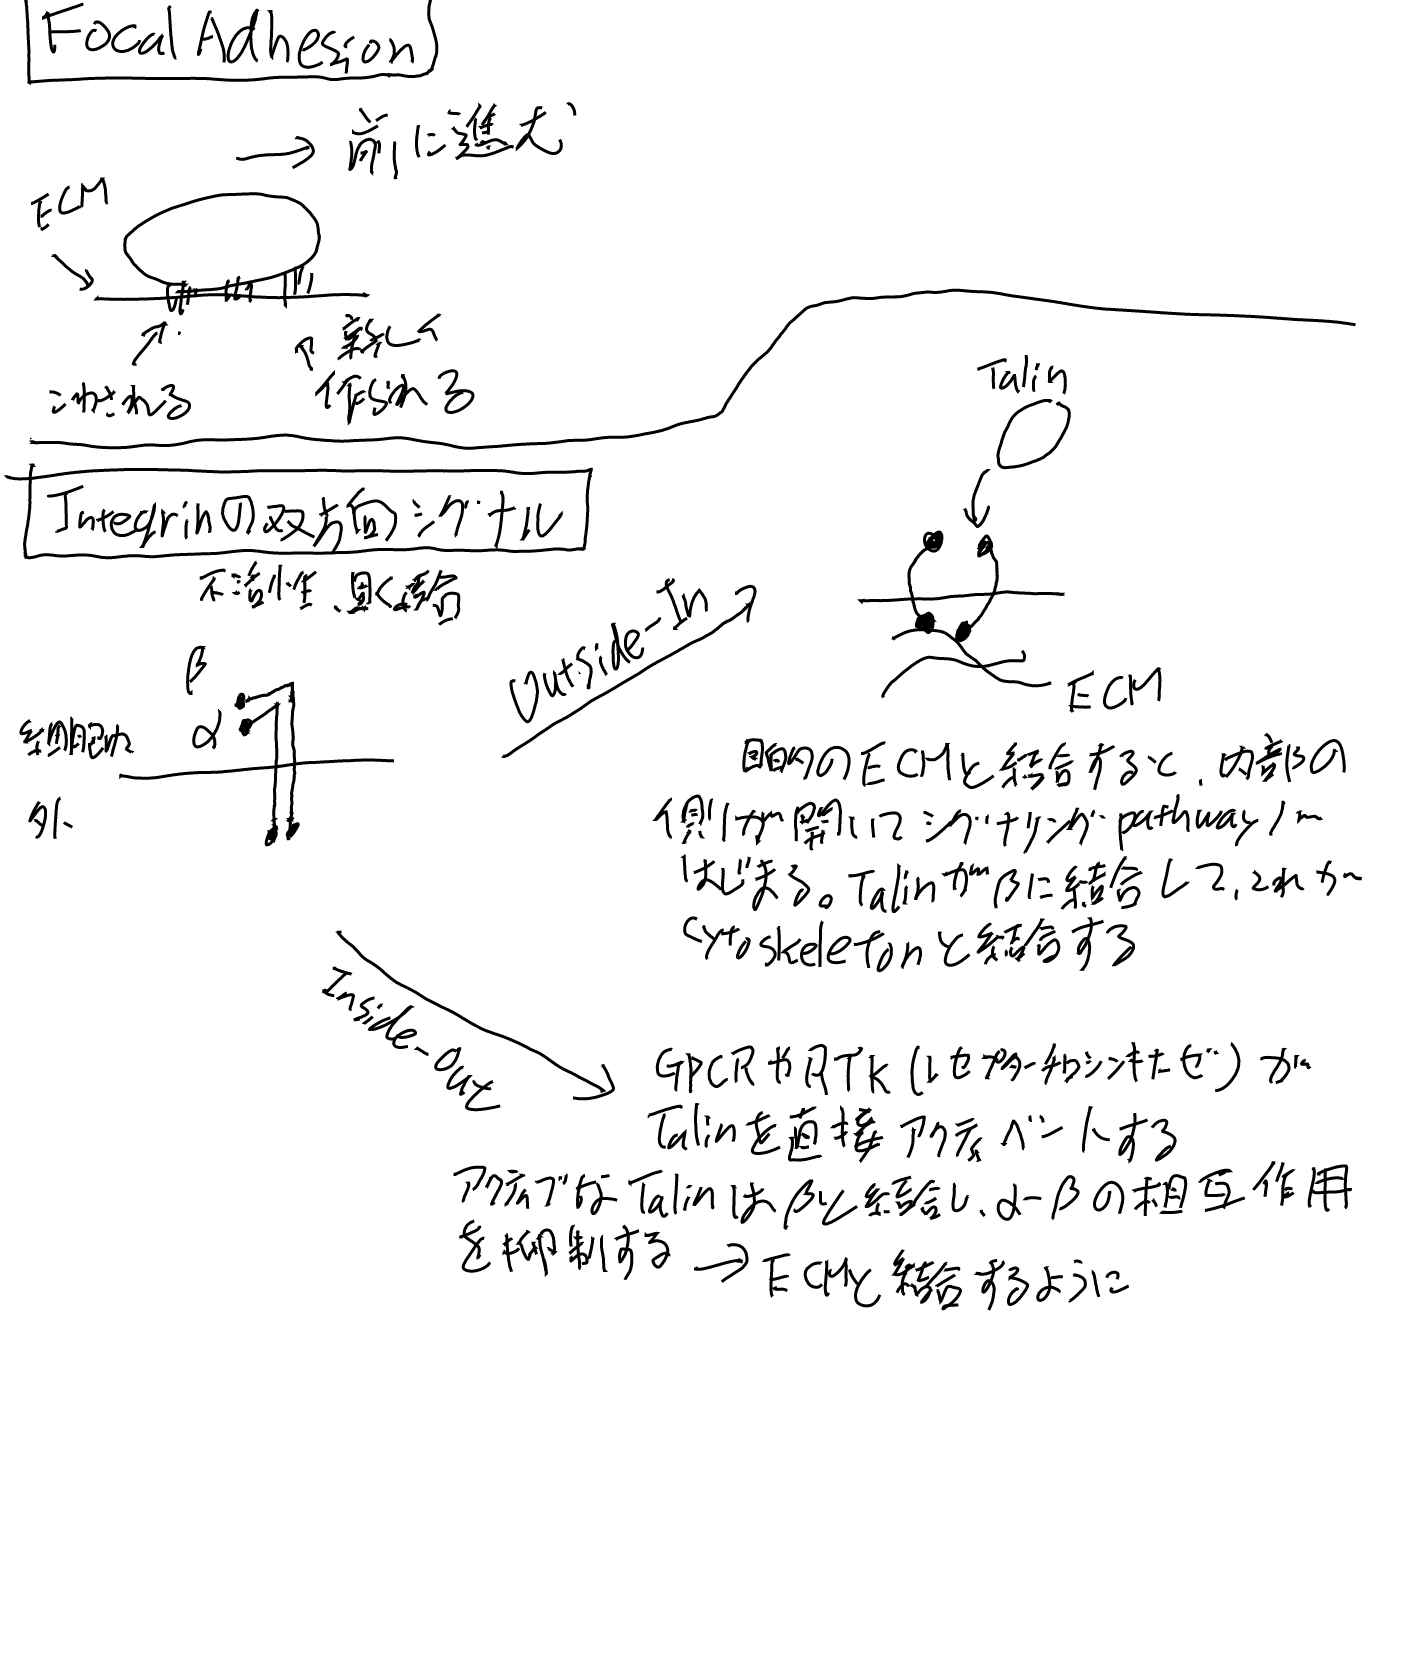 Focal Adhesion
→ 前に進む
ECM
こわされる
新しく
作られる
Integrinの双方向シグナル
不活性、固く結合
β
α
細胞内
外
Outside-In
Talin
ECM
目的のECMと結合すると、内部の
側が開いてシグナリングpathwayが
はじまる。Talinがβに結合して、これが
cytoskeletonと結合する
Inside-Out
GPCRやRTK(レセプターチロシンキナーゼ)が
Talinを直接アクティベートする
アクティブなTalinはβと結合し、α-βの相互作用
を抑制する → ECMと結合するように